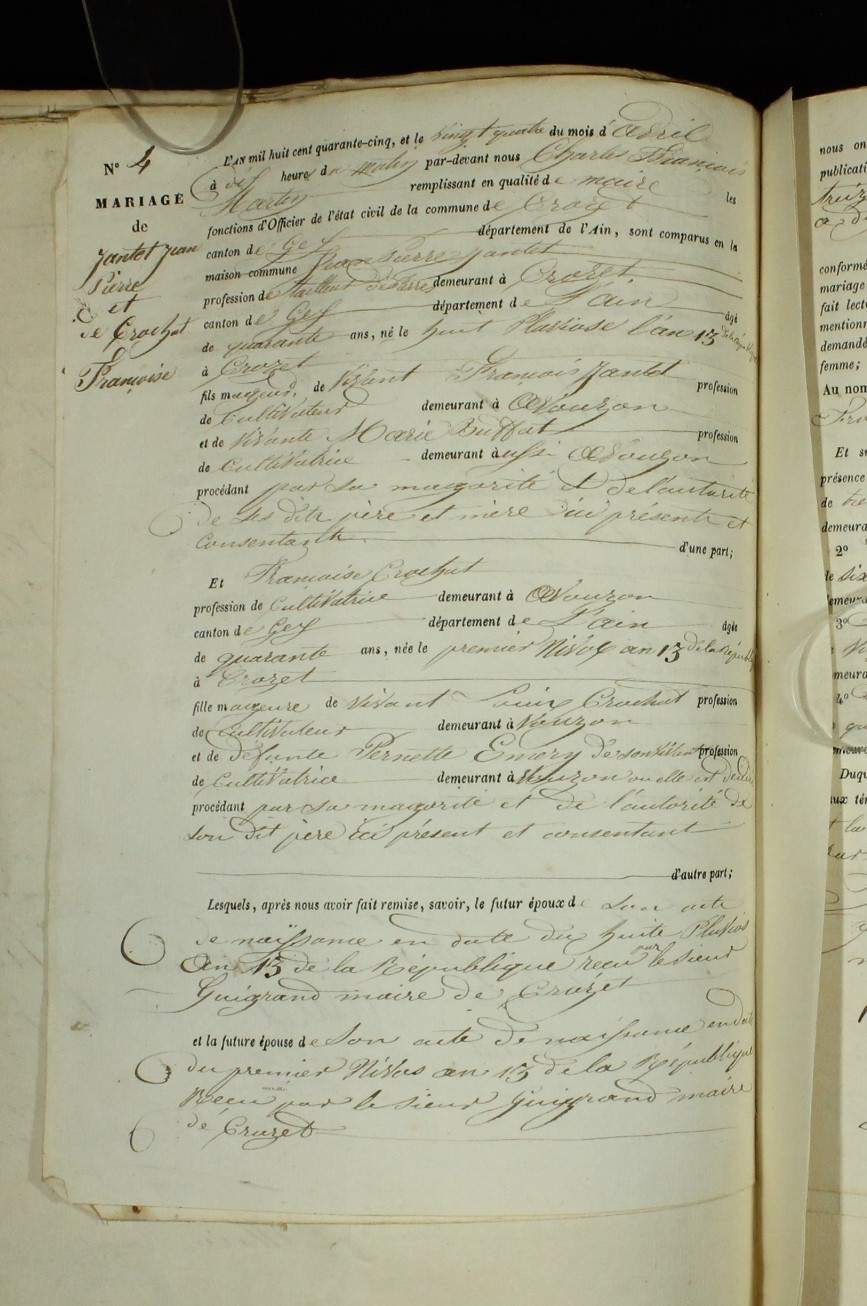 N° 4
MARIAGE
de
Jantet Jean
Pierre
et
de Crochat
Françoise
L'AN mil huit cent quarante-cinq, et le vingt quatre du mois d'Avril
à dix heures du matin par-devant nous Charles François
Martin remplissant en qualité de maire les
fonctions d'Officier de l'état civil de la commune de Crozet
canton de Gex département de l'Ain, sont comparus en la
maison commune Jean Pierre Jantet
profession de tailleur de pierre demeurant à Crozet
canton de Gex département de l'ain âgé
de quarante ans, né le huit Pluviose l'an 13 de la République
à Crozet
fils majeur de vivant François Jantet profession
de Cultivateur demeurant à Avouzon
et de vivante Marie Buffat profession
de Cultivatrice demeurant à ussi Avouzon
procédant par sa majorité et de l'autorité
de ses dits père et mère ici présents et
consentants d'une part;
Et Françoise Crochat
profession de Cultivatrice demeurant à Avouzon
canton de Gex département de l'ain âgée
de quarante ans, née le premier Nivos an 13 de la République
à Crozet
fille majeure de vivant Louis Crochat profession
de Cultivateur demeurant à Avouzon
et de défunte Pernette Emery de son vivant profession
de Cultivatrice demeurant à Avouzon ou elle est décédée
procédant par sa majorité et de l'autorité de
son dit père ici présent et consentant
d'autre part;
Lesquels, après nous avoir fait remise, savoir, le futur époux de son acte
de naissance en date du huite Pluvios
An 13 de la République recu par le sieur
Guigrand maire de Crozet
et la future épouse de son acte de naissance en date
du premier Nivos an 13 de la République
Recu par le sieur Guigrand maire
de Crozet
nous on
publicati
conformé
mariage
fait lect
mentionn
demandé
femme;
Au nom
Et s
présence
de
demeura
2°
de six
3°
4°
Duqu
aux tém